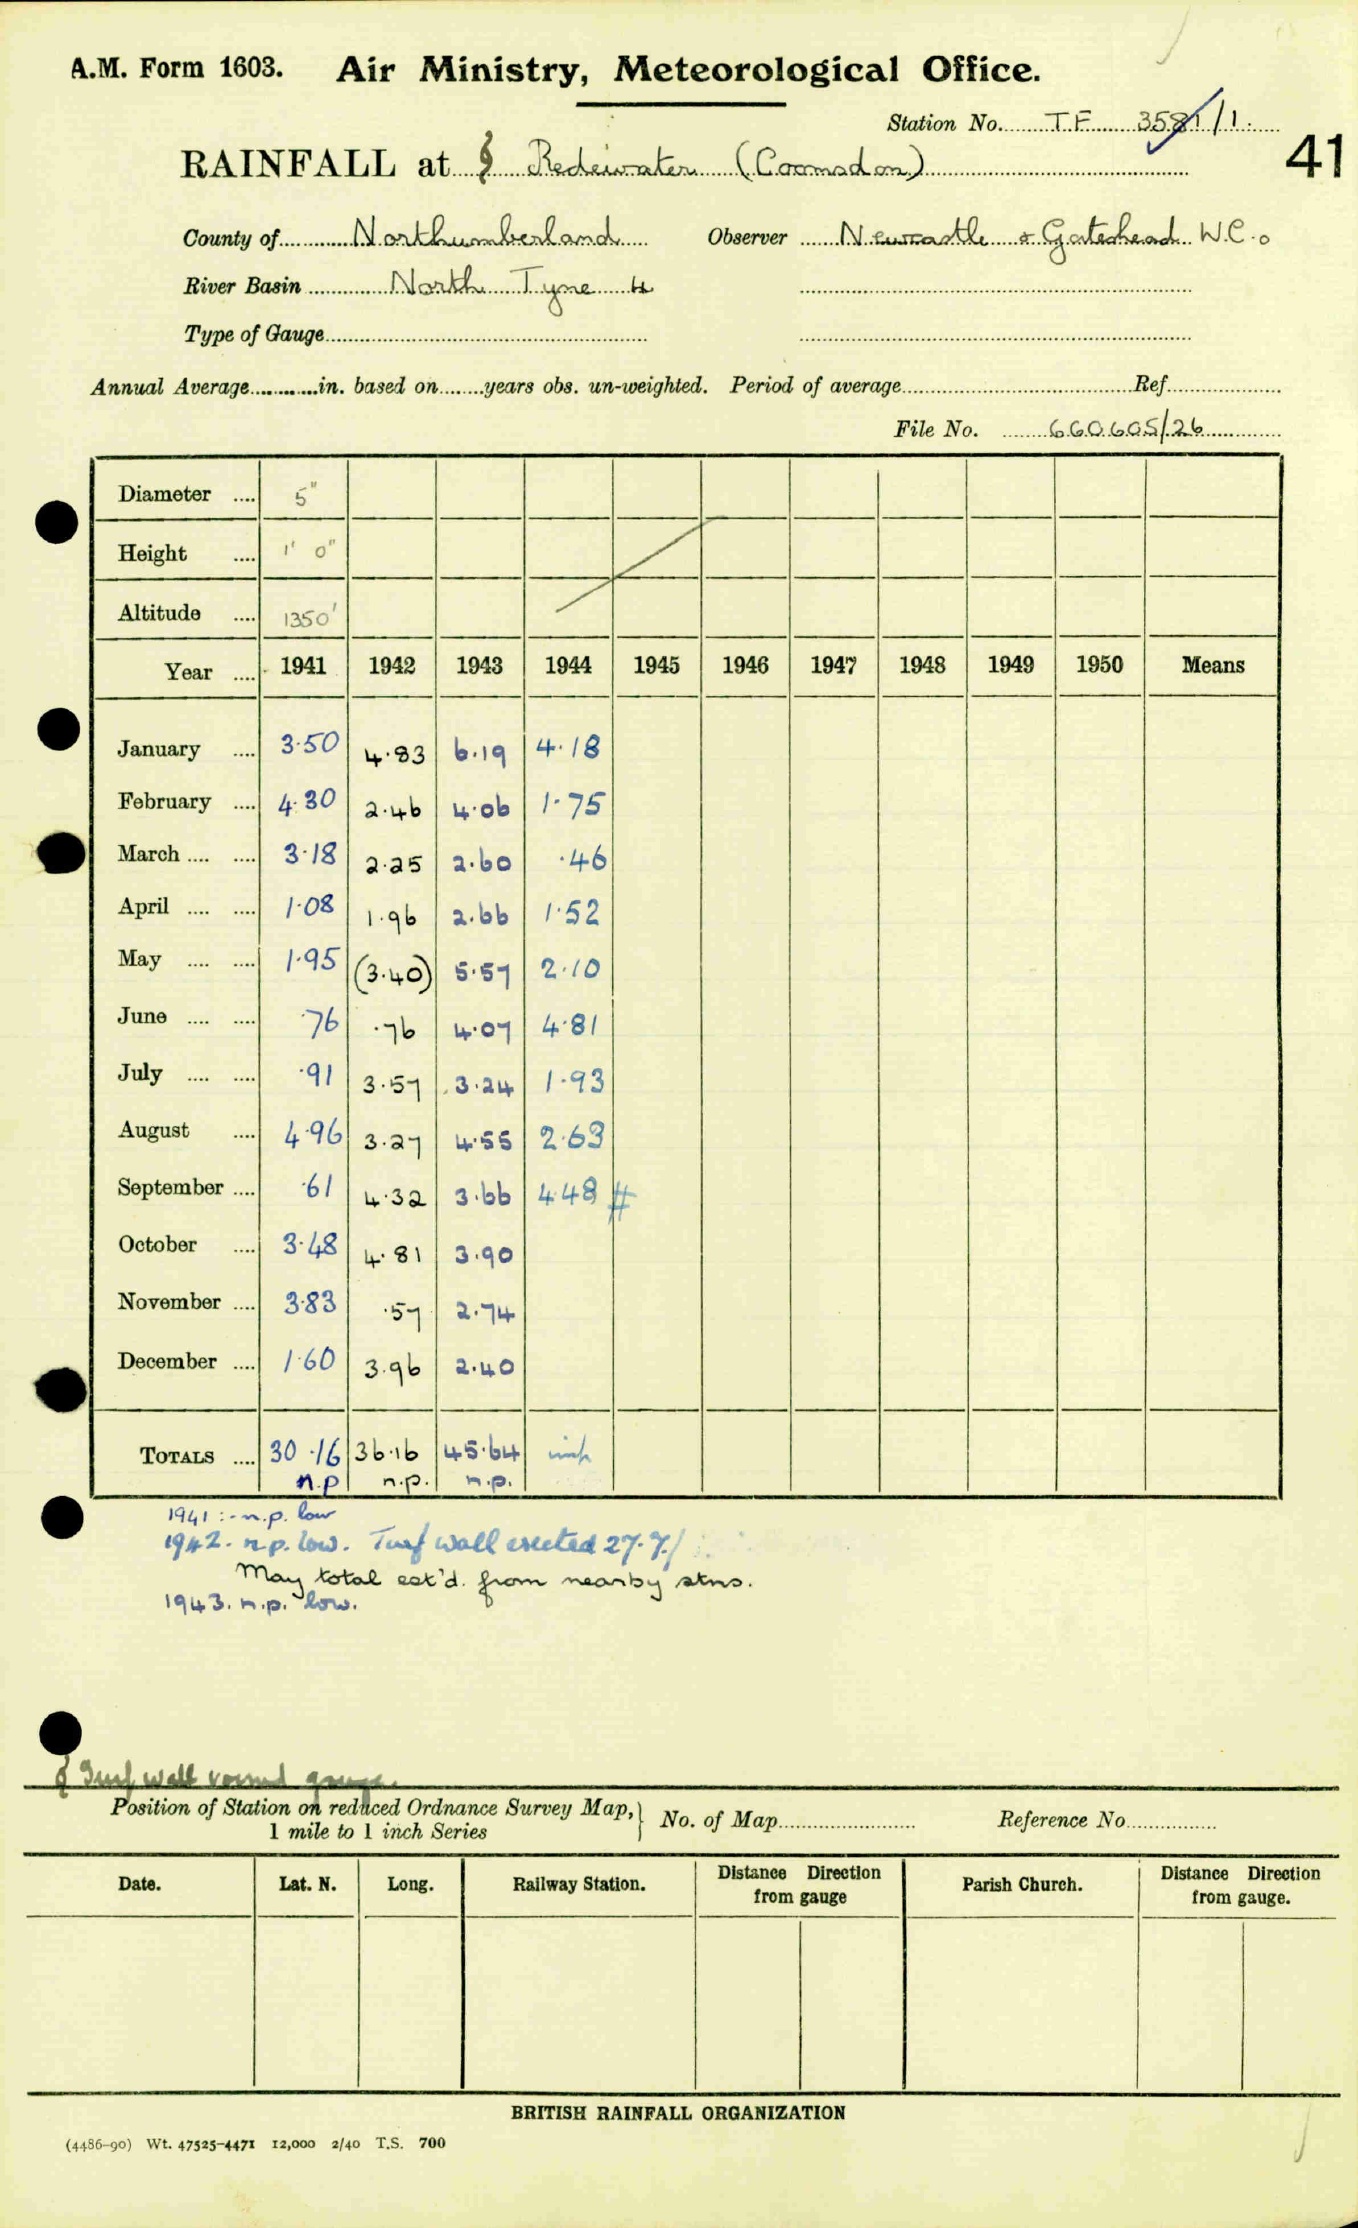 A.M. Form 1603. Air Ministry, Meteorological Office.
Station No. TF 3581/1.
41
RAINFALL at § Redewater (Coomsdon)
County of Northumberland Observer Newcastle & Gateshead W.Co
River Basin North Tyne 4
Type of Gauge
Annual Average............in. based on.......years obs. un-weighted. Period of average Ref.
File No. 660605/26
Diameter .... 5"
Height .... 1' 0"
Altitude .... 1350'
Year .... 1941 1942 1943 1944 1945 1946 1947 1948 1949 1950 Means
January .... 3.50 4.83 6.19 4.18
February .... 4.30 2.46 4.06 1.75
March .... .... 3.18 2.25 2.60 .46
April .... .... 1.08 1.96 2.66 1.52
May .... .... 1.95 (3.40) 5.57 2.10
June .... .... .76 .76 4.07 4.81
July .... .... .91 3.57 3.24 1.93
August .... 4.96 3.27 4.55 2.63
September .... .61 4.32 3.66 4.48 #
October .... 3.48 4.81 3.90
November .... 3.83 .57 2.74
December .... 1.60 3.96 2.40
TOTALS .... 30.16 36.16 45.64
n.p n.p. n.p.
1941 :- n.p. low
1942. n.p. low. Turf wall erected 27.7./
May total est'd. from nearby stns.
1943. n.p. low.
§ Turf wall round gauge.
Position of Station on reduced Ordnance Survey Map, } No. of Map Reference No.
1 mile to 1 inch Series
Date. Lat. N. Long. Railway Station. Distance Direction from gauge Parish Church. Distance Direction from gauge.
BRITISH RAINFALL ORGANIZATION
(4486-90) Wt. 47525-4471 12,000 2/40 T.S. 700